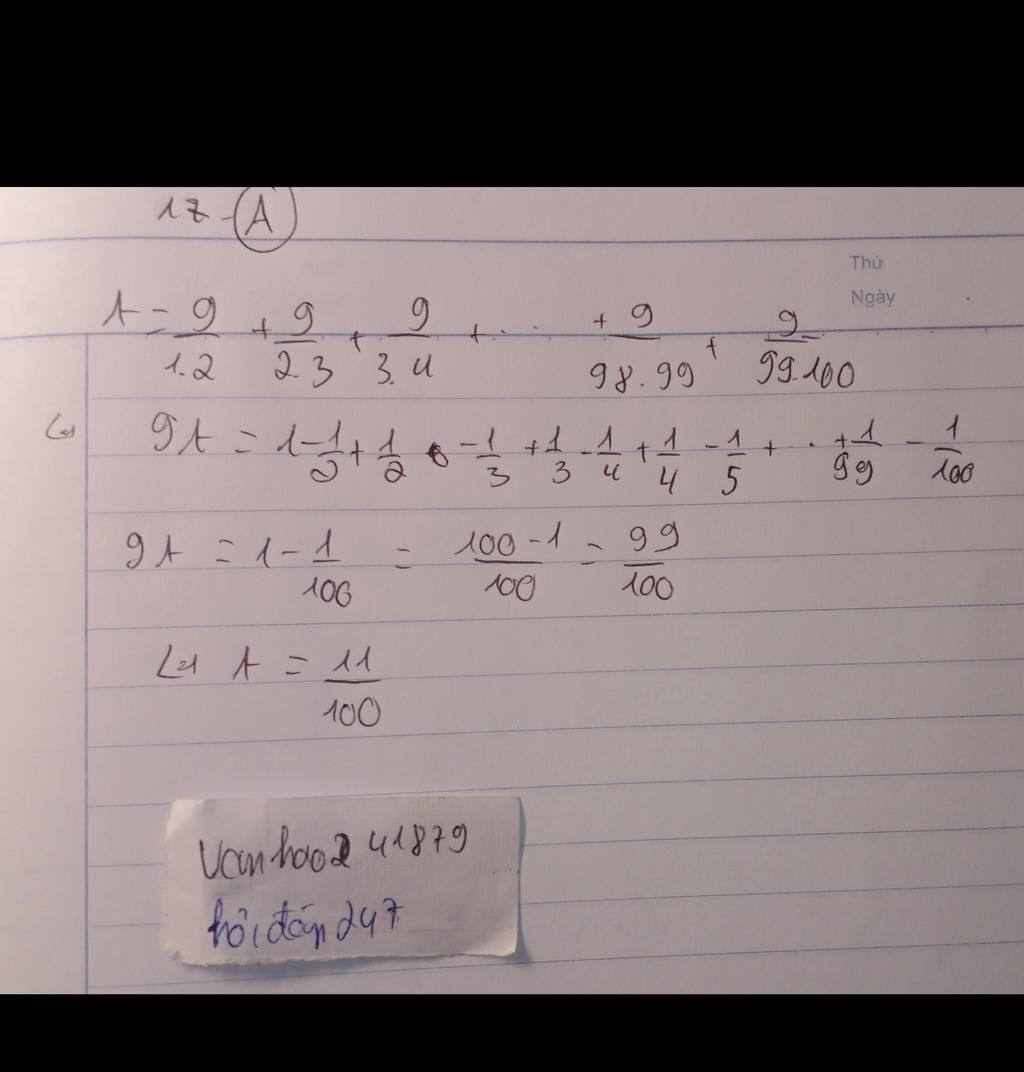 17-A
Thứ
Ngày
A = 9/1.2 + 9/2 3 + 9/3.4 + .. + 9/98.99 + 9/99.100
9A = 1 - 1/2 + 1/2 - 1/3 + 1/3 - 1/4 + 1/4 - 1/5 + .. + 1/99 - 1/100
9A = 1 - 1/100 = 100 - 1/100 = 99/100
A = 11/100
Vanhao2 41879
hỏi đáp 247